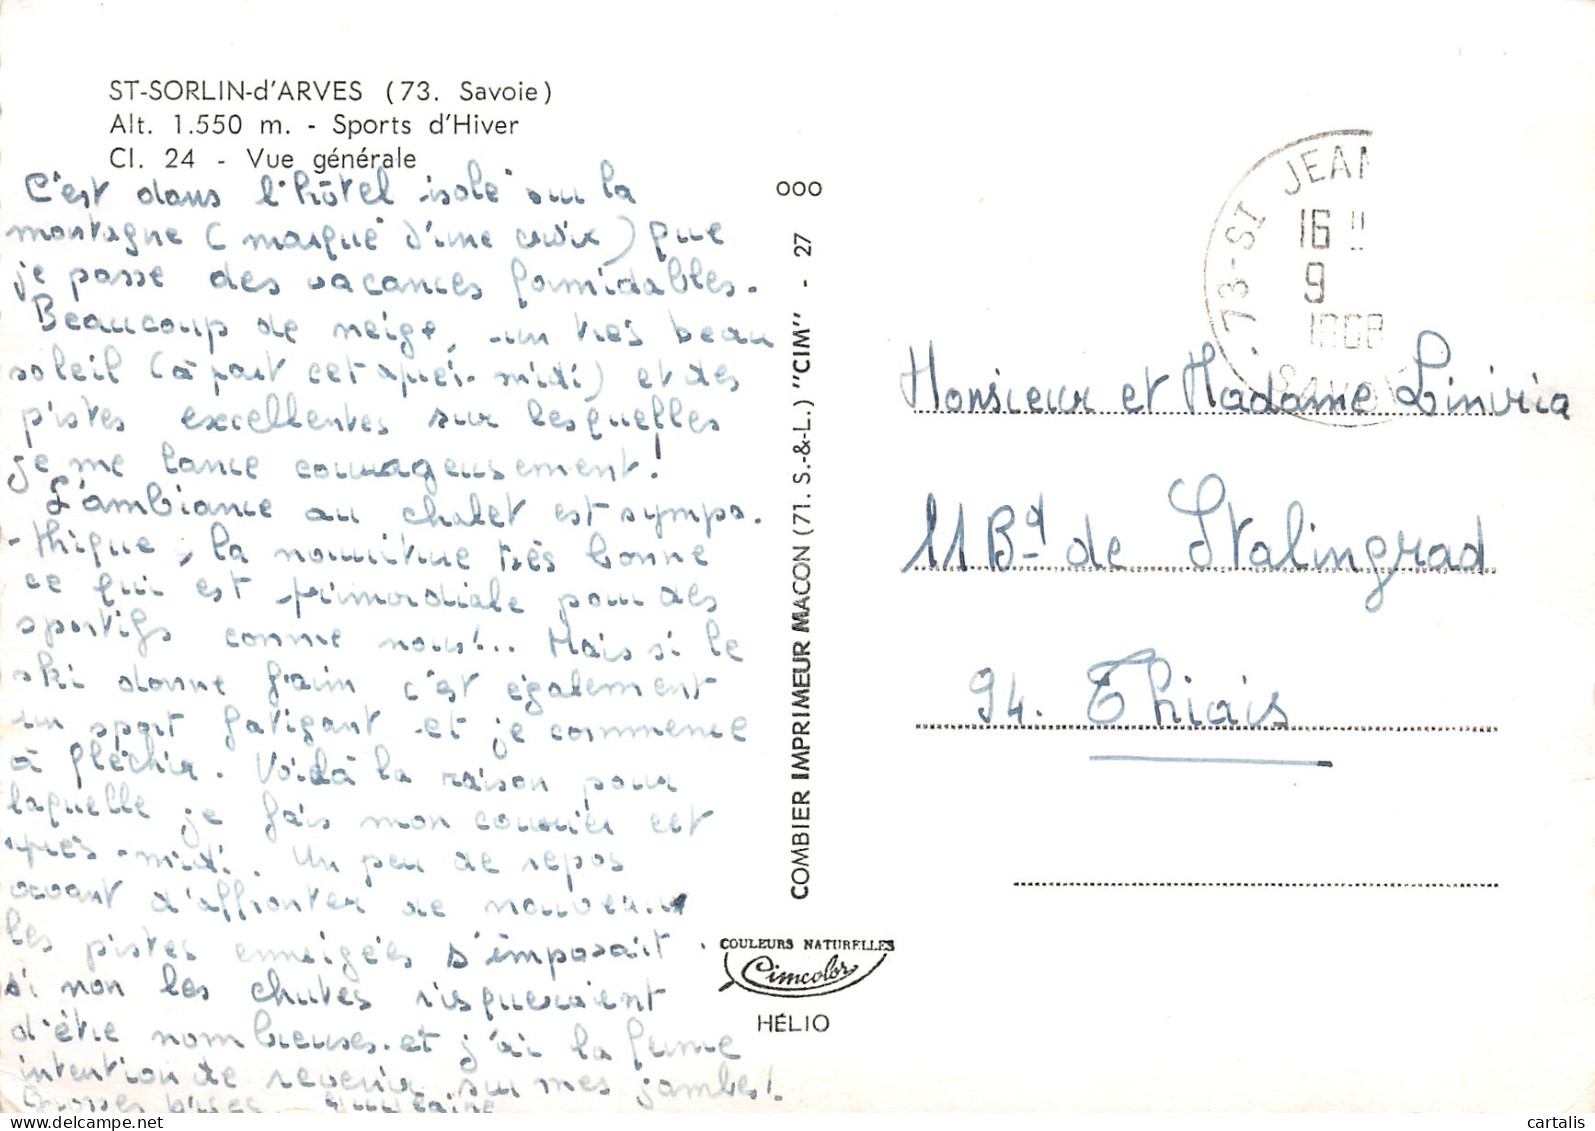 ST-SORLIN-d'ARVES (73. Savoie)
Alt. 1.550 m. - Sports d'Hiver
Cl. 24 - Vue générale
C'est dans l'hôtel isolé sur la
montagne (marqué d'une croix) que
je passe des vacances formidables.
Beaucoup de neige, un très beau
soleil (à part cet après-midi) et des
pistes excellentes sur lesquelles
je me lance courageusement!
L'ambiance au chalet est sympa-
-thique, la nourriture très bonne
ce qui est primordiale pour des
sportifs comme nous!.. Mais si le
ski donne faim c'est également
un sport fatigant et je commence
à fléchir. Voidà la raison pour
laquelle je fais mon courrier cet
après-midi. Un peu de repos
avant d'affronter de nouveau
les pistes enneigées s'imposait.
si non les chutes risqueraient
d'être nombreuses. et j'ai la ferme
intention de revenir sur mes jambes!
Grosses bises
000
COMBIER IMPRIMEUR MACON (71. S.-&-L.) "CIM" - 27
COULEURS NATURELLES
Cimcolor
HÉLIO
73-ST JEAN
16 H
9
1968
SAVOIE
Monsieur et Madame Liniria
11 Bd de Stalingrad
94. Thiais
cartalis